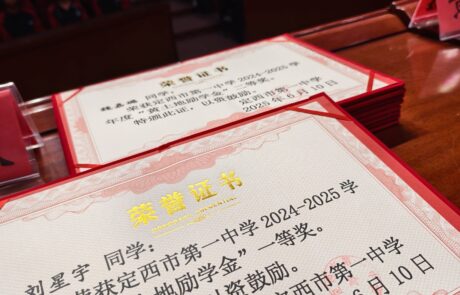 荣誉证书
同学:
荣获定西市第一中学 2024-2025 学
年度“黄土地励学金”二等奖。
特颁此证,以资鼓励。
定西市第一中学
2025 年 6 月 10 日
荣誉证书
刘星宇 同学:
荣获定西市第一中学 2024-2025 学
地励学金”一等奖。
以资鼓励。
定西市第一中学
年 6 月 10 日